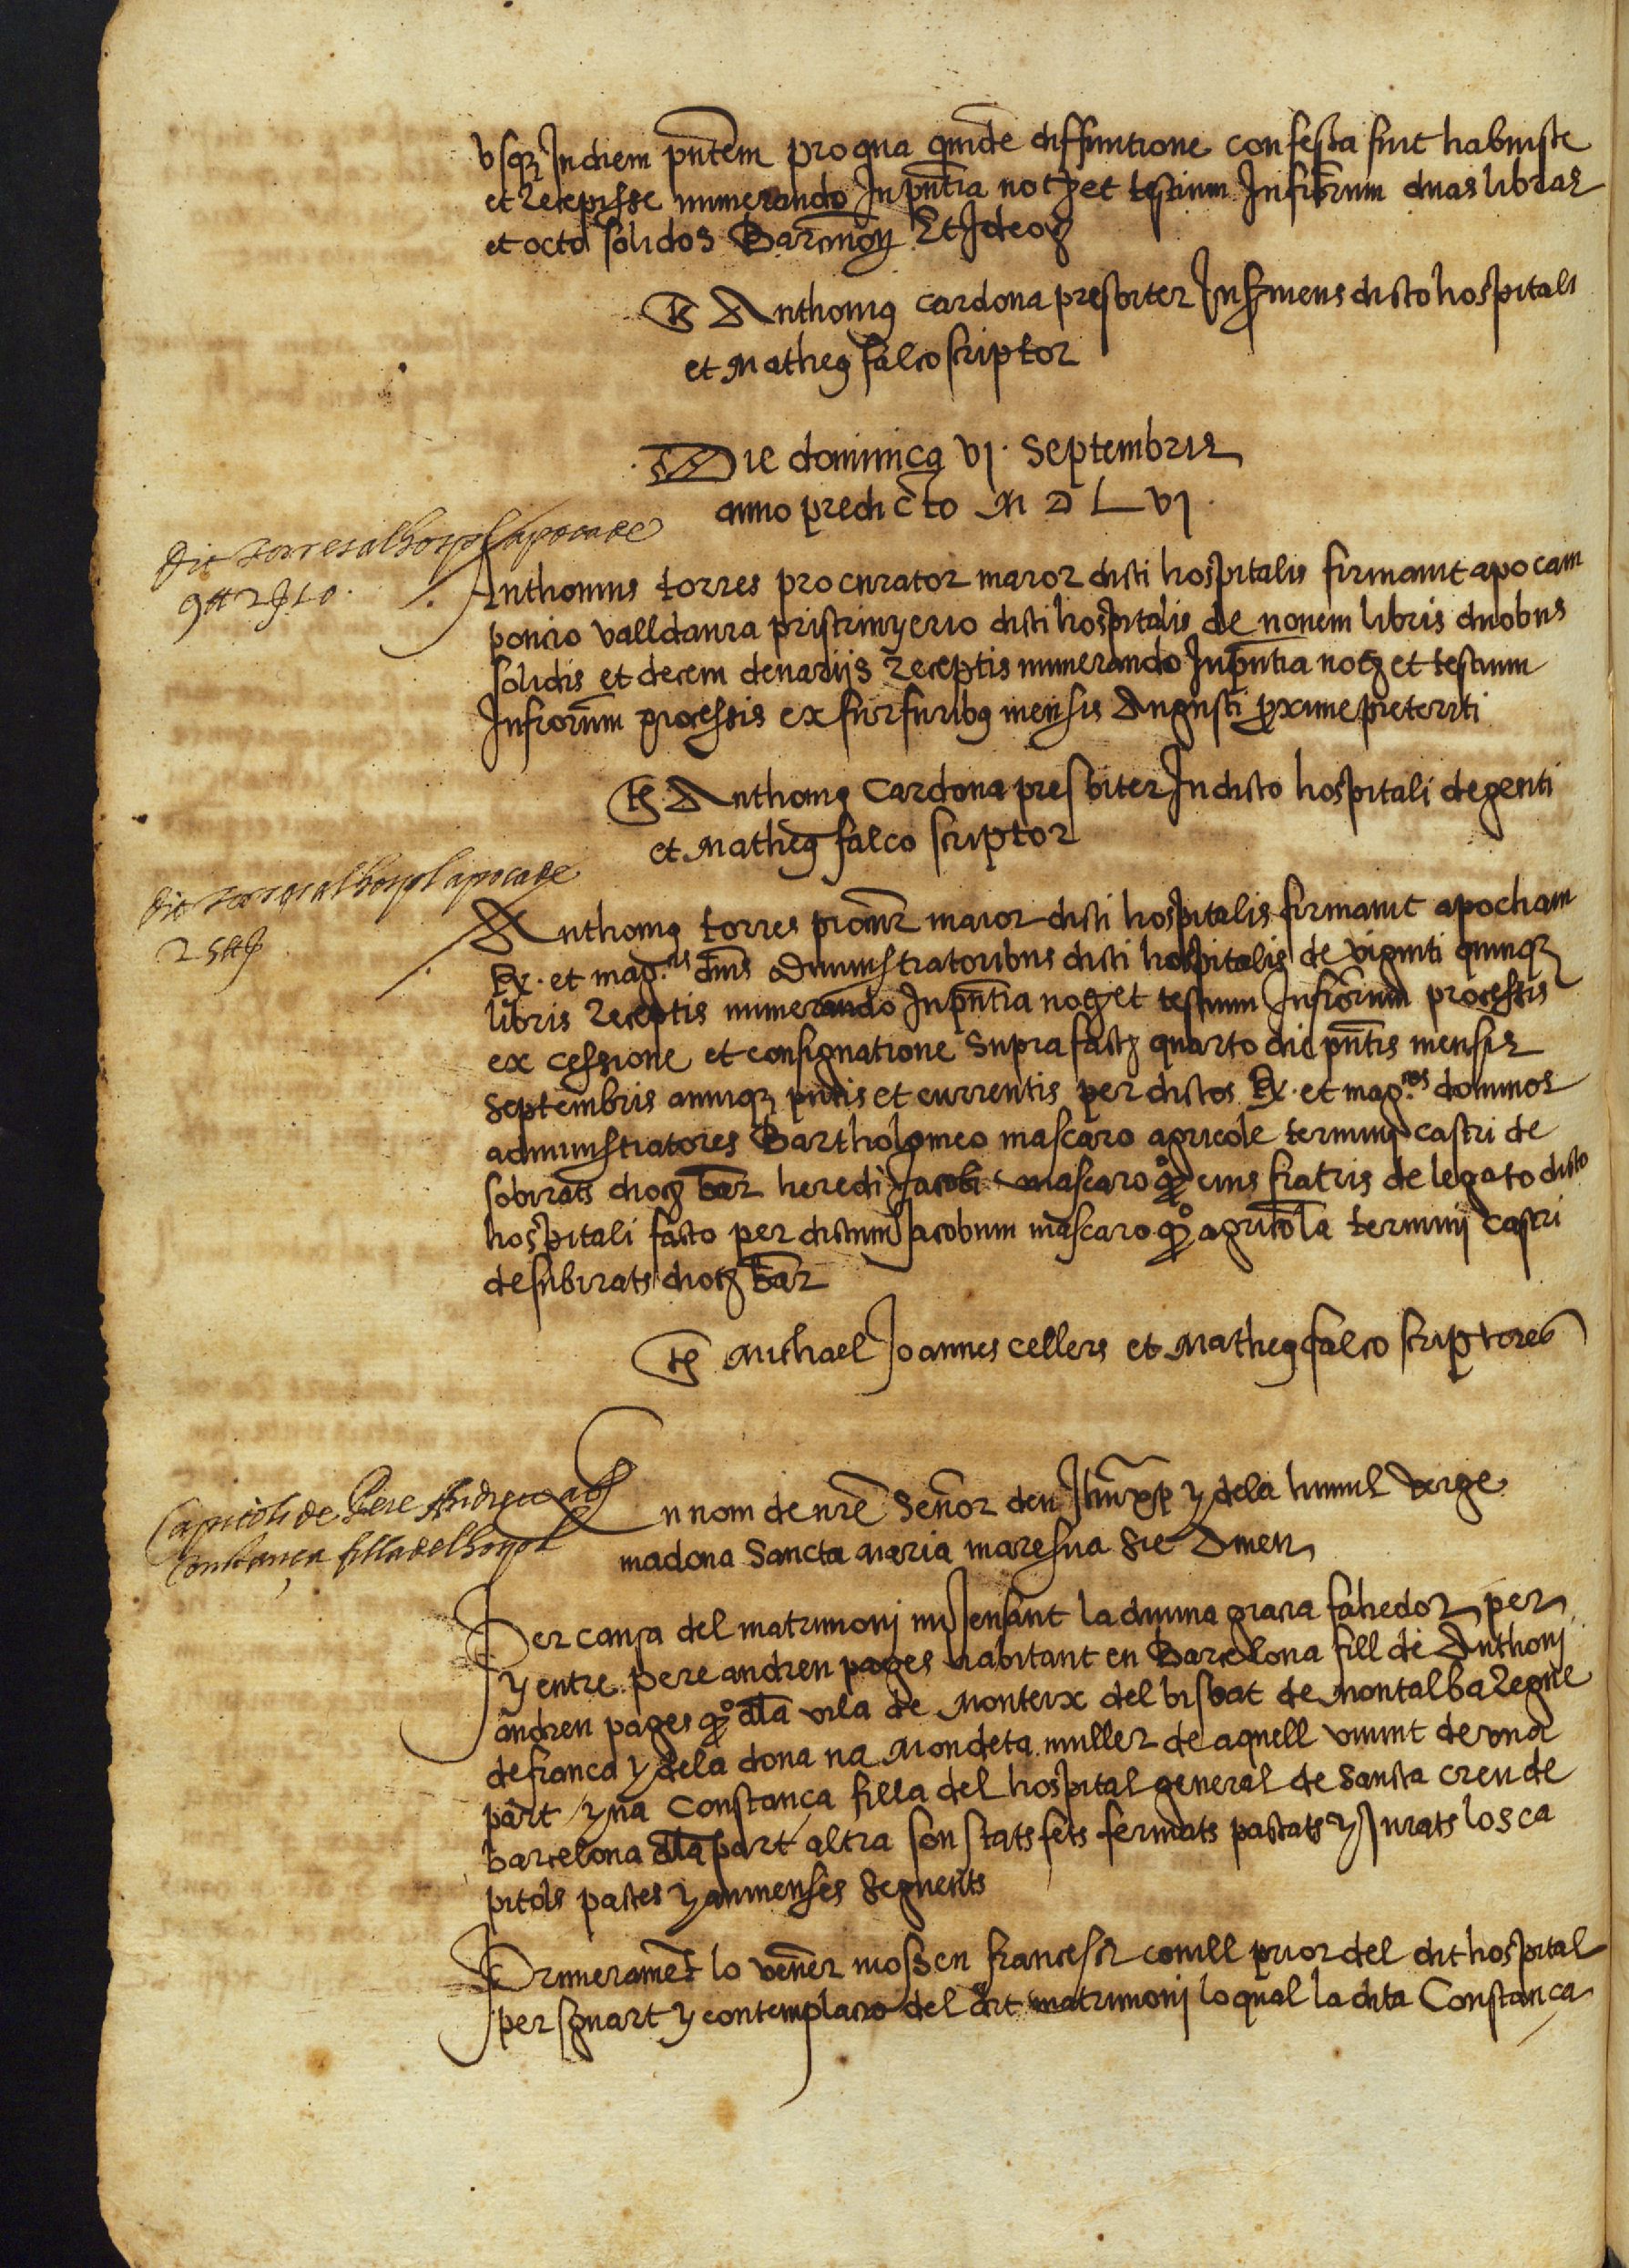 vsq₃ In diem pn̄tem pro qua quid̄e diffinitione confessa fuit habuisse
et recepisse numerando In pn̄tia not₃ et testium Infr̄orum duas libras
et octo solidos Barc̄ mon̄ Et Ideo ꝫ
Ts̄ Anthoniꝰ Cardona presbiter In serviens dicto hospitali
et Matheꝰ falco scriptor
Die dominica vj. Septembris
anno predicto M D L vj.
dit torres al hospl apoca de
9 ₶ 2 ẞ 10.
Anthonius torres procurator maior dicti hospitalis firmavit apocam
poncio valldaura pristrinyerio dicti hospitalis de novem libris duobus
solidis et decem denariis receptis numerando In pn̄tia not₃ et testium
Infrōrum processis ex furfuribꝰ mensis Augusti ꝓxime preteriti
Ts̄ Anthoniꝰ Cardona presbiter In dicto hospitali degenti
et Matheꝰ falco scriptor
dit torres al hospl apoca de
25 ₶ ẞ
Anthoniꝰ torres procur̄ maior dicti hospitalis firmavit apocham
Rx. et mag.cis dn̄is Administratoribus dicti hospitalis de viginti quinq₃
libris receptis numerando In pn̄tia not₃ et testium Infrōrum processis
ex cessione et consignatione supra fact₃ quarto die pn̄tis mensis
Septembris anniq₃ pn̄tis et currentis per dictos Rx. et mag.cos dominos
administratores Bartholomeo mascaro agricole termini castri de
sobirats dioc₃ bar̄ heredi Jacobi mascaro qͦ eius fratris de legato dicto
hospitali facto per dictum Jacobum mascaro qͦ agricola termini castri
de subirats dioc₃ bar̄
Ts̄ Michael Joannes cellers et Matheꝰ falco scriptores
Capitols de Pere Andreu ab
Constança filla del hospl
En nom de nr̄e Sen̄or deu Jhū xp̄ y dela humil verge
madona Sancta maria mare sua sie Amen
Per causa del matrimonj mijensant la divina gracia fahedor per
y entre pere andreu pages habitant en Barcelona fill de Anthonj
andreu pages qͦ dla vila de Monteix del bisbat de montalba Regne
de franca y dela dona na Mondeta muller de aquell vivint de una
part y na Constança filla del hospital general de Sancta creu de
barcelona dla part altra son stats fets fermats pactats y Jurats los ca
pitols pactes y avinenses seguents
Primerament lo vener̄ mossen francesch comill prior del dit hospital
per sguart y contemplacio del dit matrimonj lo qual la dita Constança